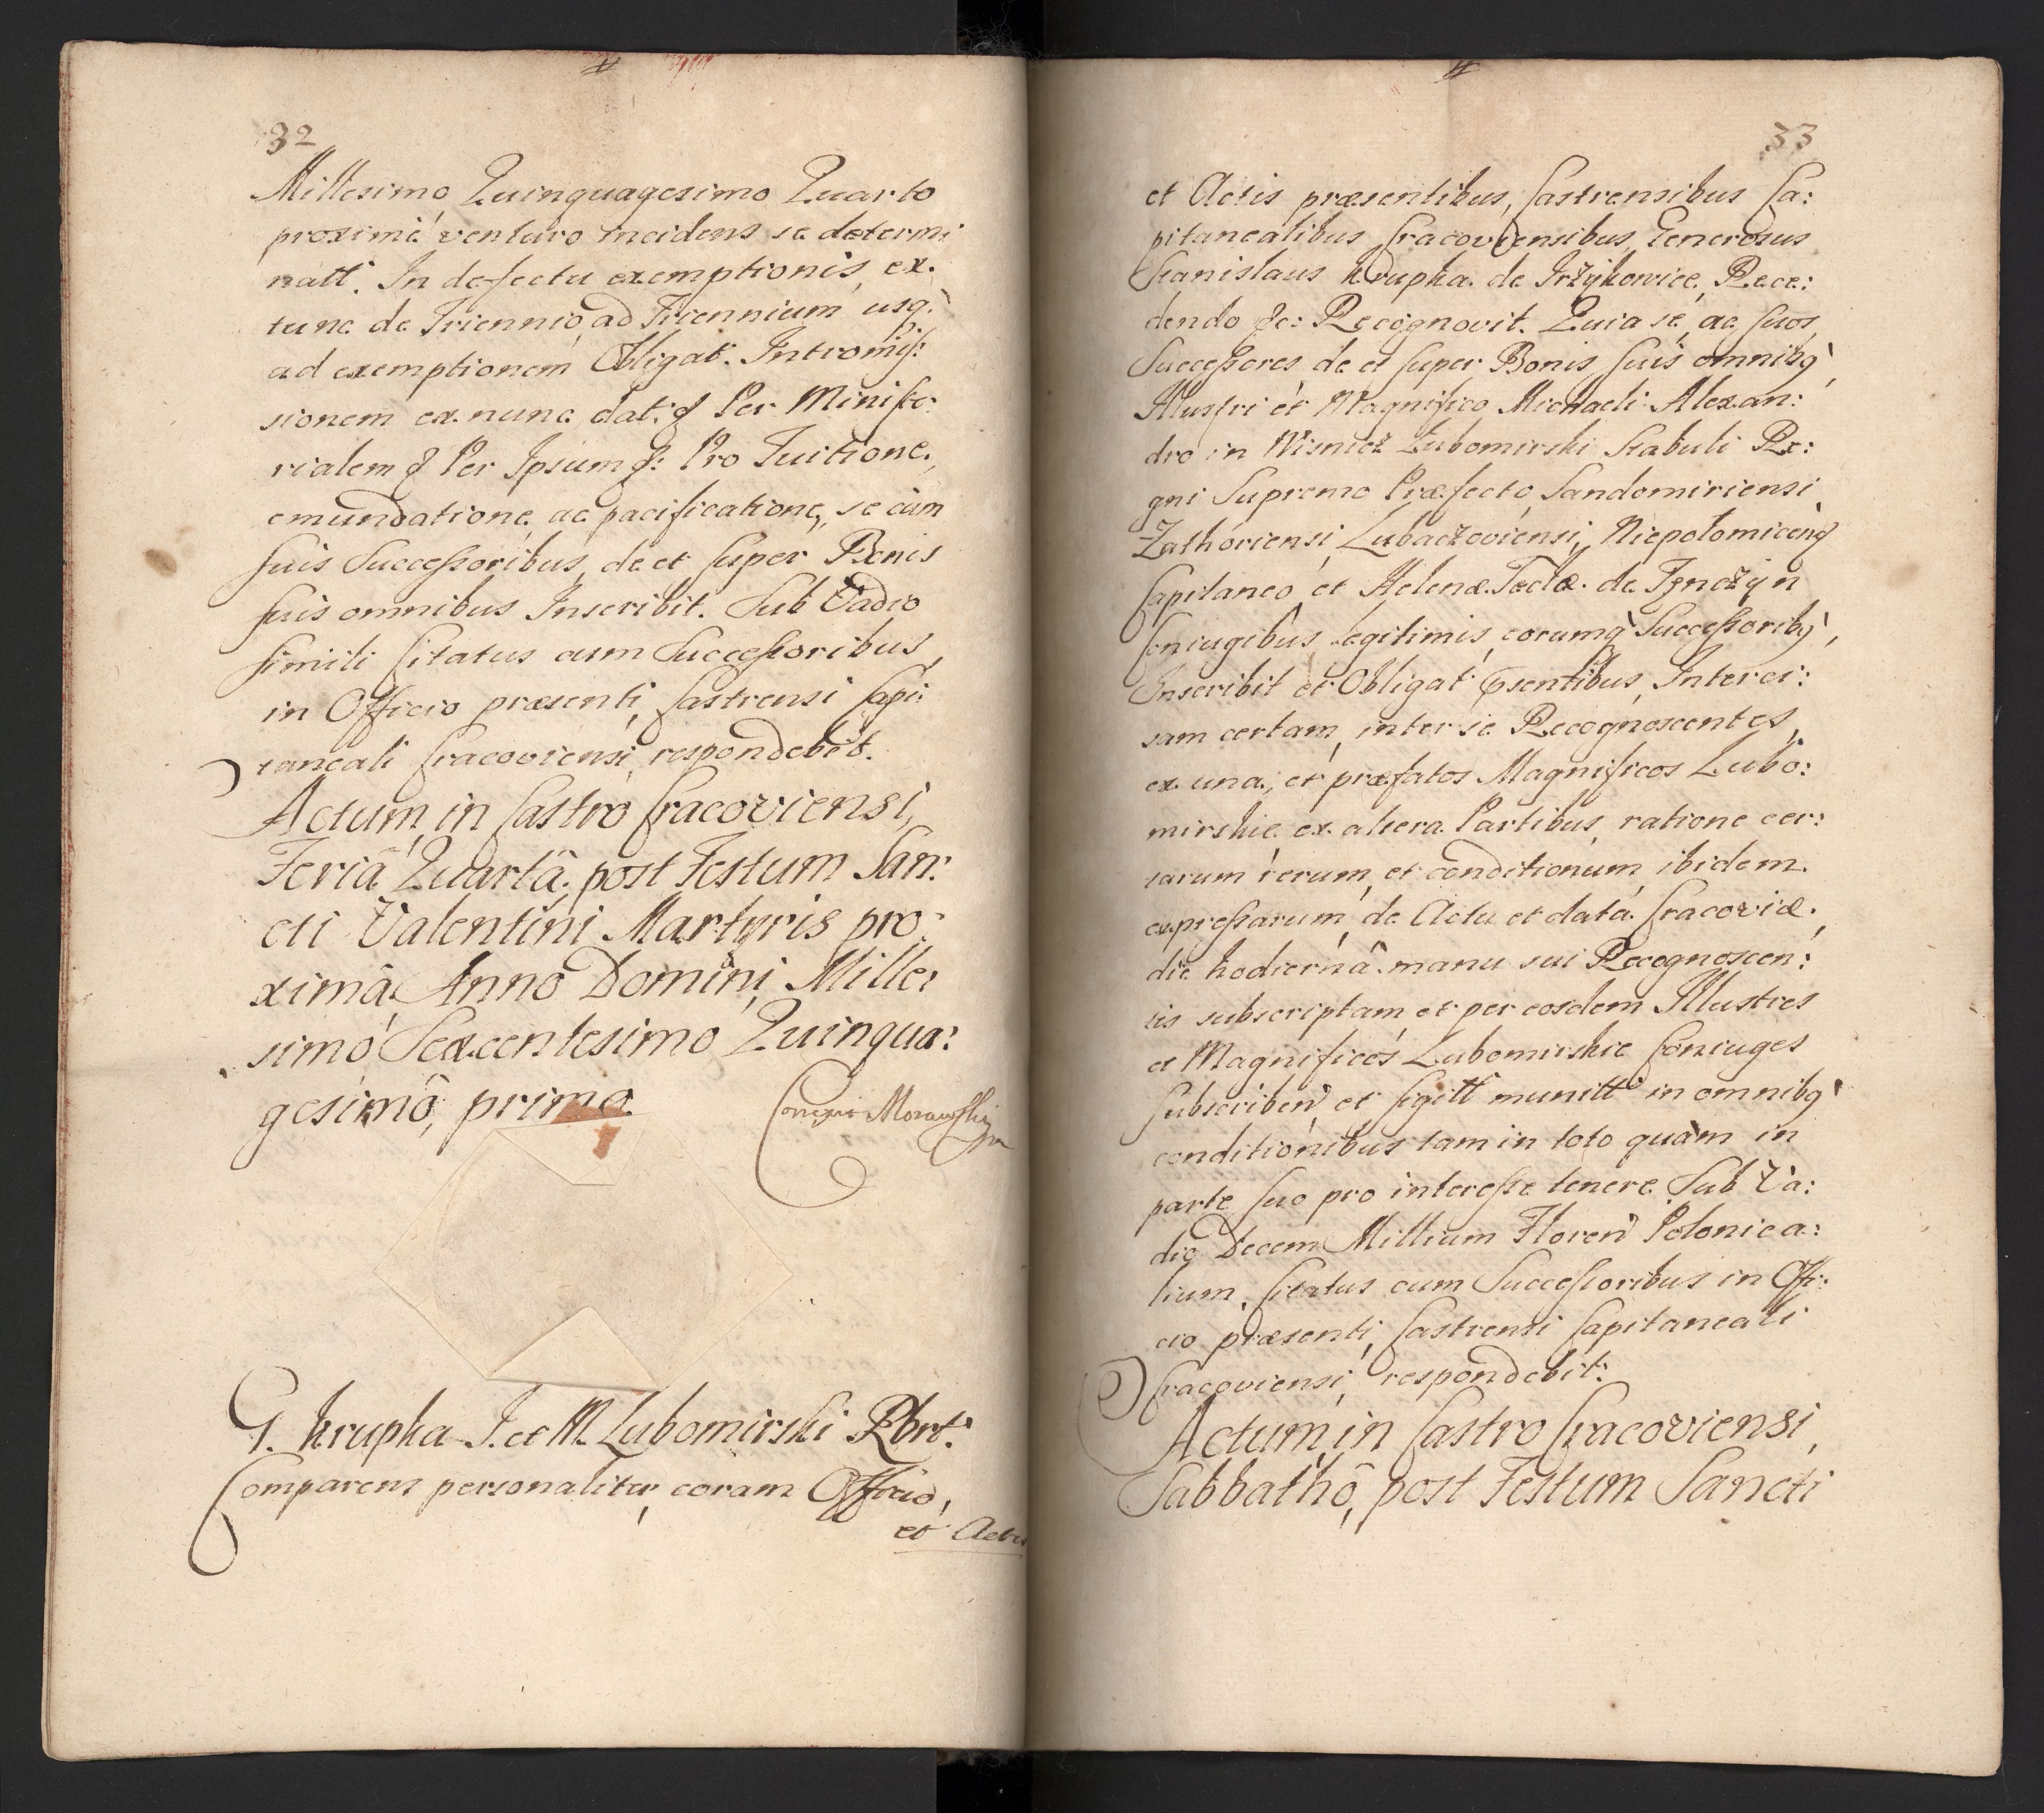 32
Millesimo Quinquagesimo Quarto
proximè venturo incidens se determi
natt. In defectu exemptionis, ex
tunc de Triennio ad Triennium usq;
ad exemptionem Obligat. Intromis:
sionem ex nunc dat. et Per Ministe:
rialem et Per Ipsum et: Pro Tuitione,
emundatione ac pacificatione, se cum
suis Successoribus, de et super Bonis
suis omnibus Inscribit. Sub Vadio
simili Citatus cum Successoribus,
in Officio præsenti, Castrensi Capi:
taneali Cracoviensi respondebit.
Actum in Castro Cracoviensi,
Feriâ Quartâ, post Festum San:
cti Valentini Martyris pro:
ximâ, Anno Domini Mille:
simô Sexcentesimo Quinqua:
gesimô, primo.
Correxit Morawski
G. Krupka I. et M. Lubomirski Rbrt.
Comparens personaliter, coram Officio,
et Actis
33
et Actis præsentibus, Castrensibus Ca:
pitanealibus Cracoviensibus Generosus
Stanislaus Krupka de Przÿkowice, Rece:
dendo &c: Recognovit. Quia se, ac suos
Successores de et super Bonis suis omnibq
Illustri et Magnifico Michaeli Alexan:
dro in Wisnicz Lubomirski Stabuli Re:
gni Supremo Præfecto, Sandomiriensi
Zathoriensi Lubaczoviensi, Niepolomicenq
Capitaneo et Helenæ Teclæ de Tÿnczÿn
Coniugibus legitimis, eorumq Successoribq,
Inscribit et Obligat Præsentibus, Interci:
sam certam, inter se Recognoscentes,
ex una, et præfatos Magnificos Lubo:
mirskie ex altera Partibus, ratione cer:
tarum rerum, et conditionum ibidem
expressarum, de Actu et datâ Cracoviæ,
die hodiernâ manu sui Recognoscen:
tis subscriptam et per eosdem Illustres
et Magnificos Lubomirskie Coniuges
subscriben et sigitt munitt in omnibq
conditionibus tam in toto quàm in
parte suo pro interesse tenere. Sub Va:
dio Decem Millium Floren Polonica:
lium. Citatus cum Successoribus in Offi:
cio præsenti, Castrensi Capitaneali
Cracoviensi, respondebit.
Actum in Castro Cracoviensi,
Sabbathô, post Festum Sancti